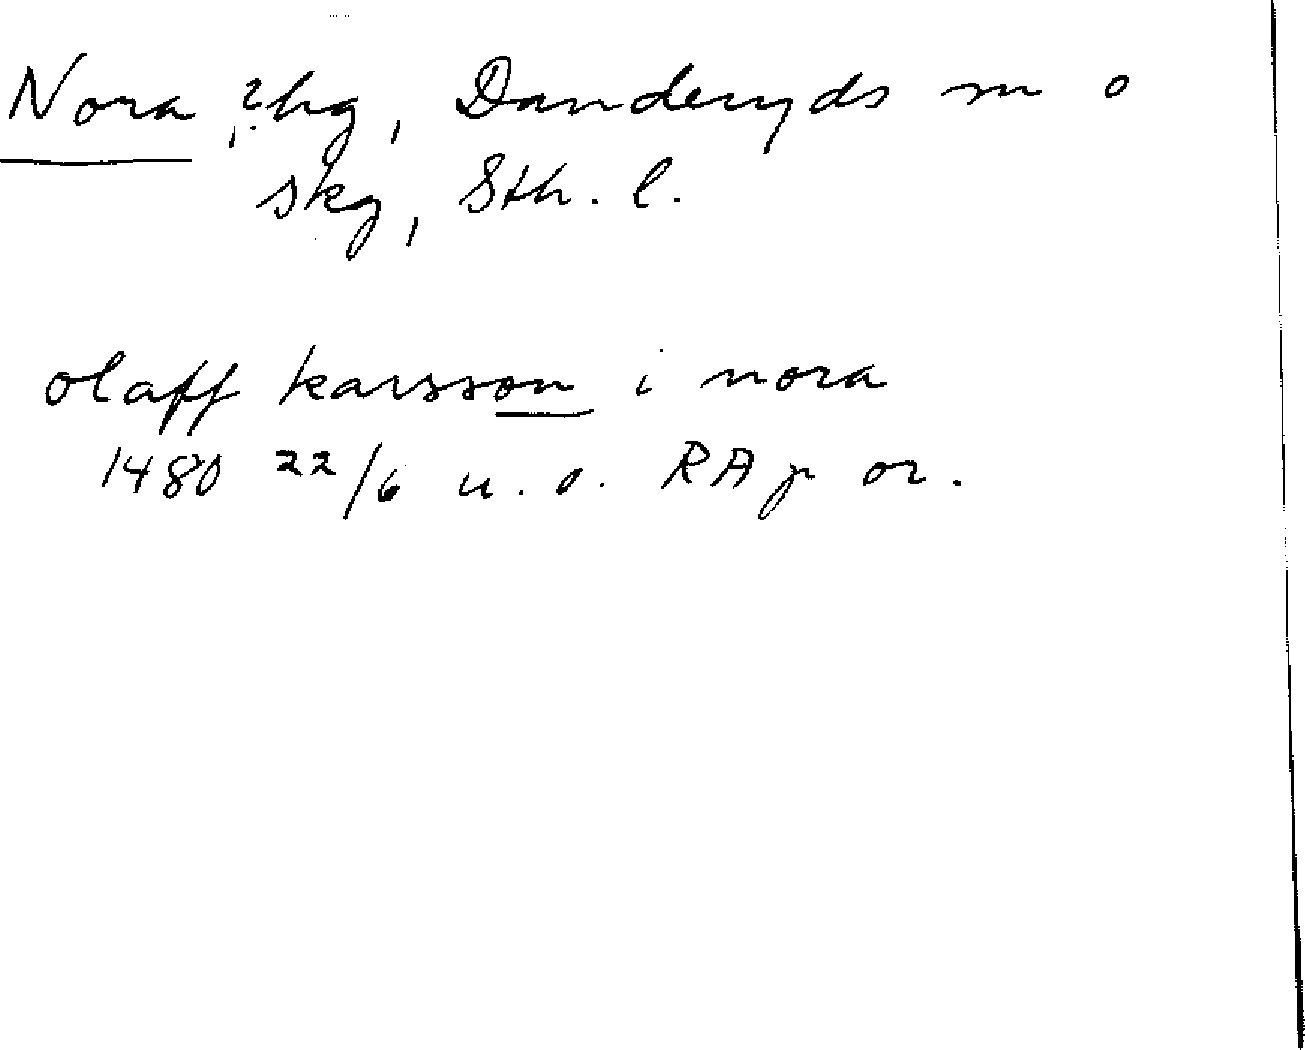 Nora, ?hg, Danderyds sn o
skg, Sth. l.
olaff karsson i nora
1480 22/6 u. o. RAp or.